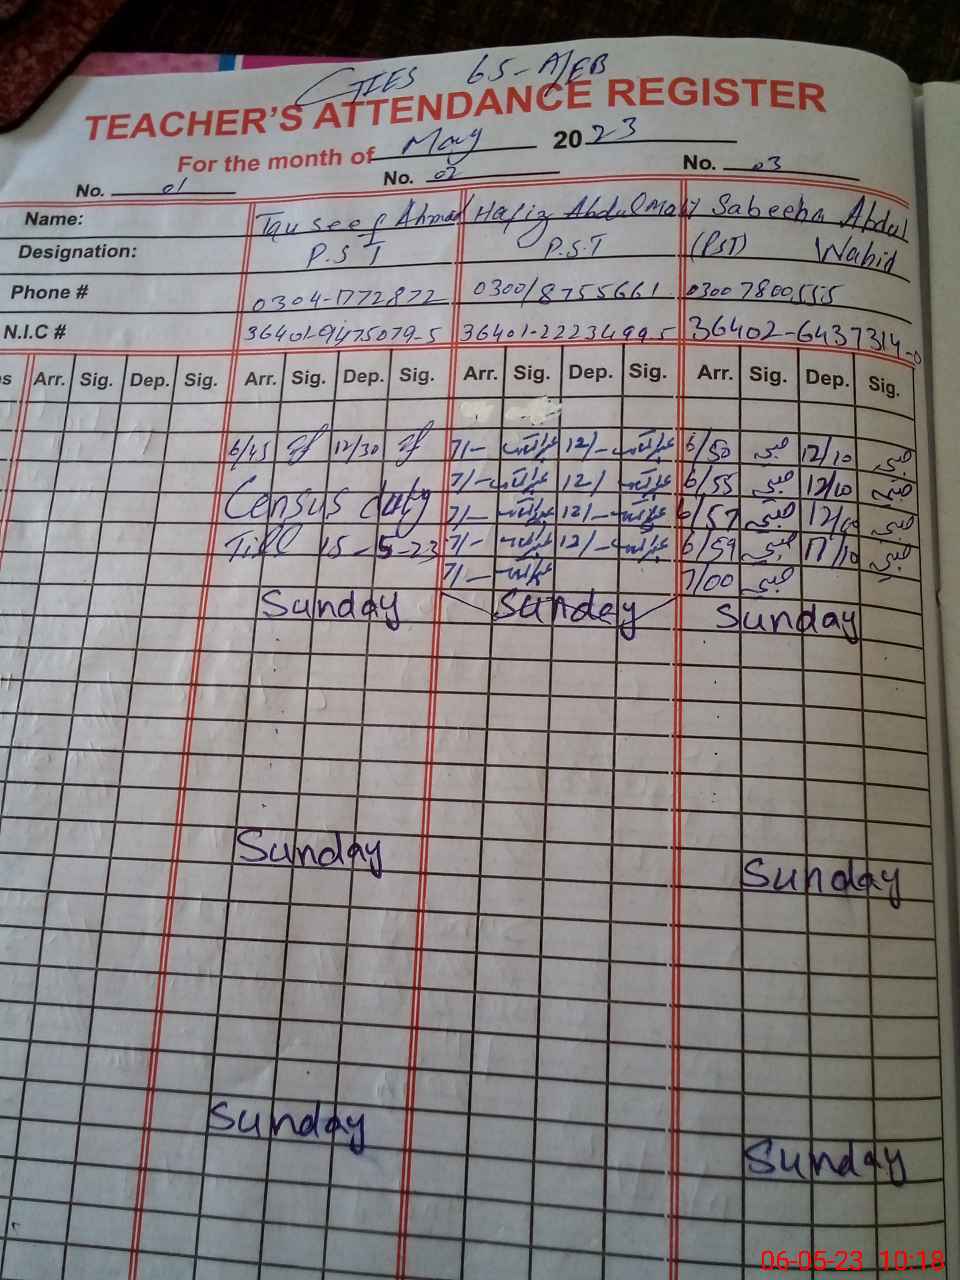 65-A/EB
TEACHER'S ATTENDANCE REGISTER
For the month of May 2023
No. 01 No. 02 No. 03
Name: Tauseef Ahmad Hafiz Abdul Sabeeha Abdul Wahid
Designation: P.S.T P.S.T (PST)
Phone # 0304-1772872 0300/8755661 03007800555
N.I.C # 36401-9475079-5 36401-2223499-5 36402-6437314-0
Arr. Sig. Dep. Sig. Arr. Sig. Dep. Sig. Arr. Sig. Dep. Sig. Arr. Sig. Dep. Sig.
6/45 12/30 7/- 12/- 6/50 12/10
7/- 12/ 6/55 12/10
Census duty 7/- 12/- 6/57
Till 15-5-23 7/- 12/- 6/59
7/- 7/00
Sunday Sunday Sunday
Sunday Sunday
Sunday Sunday
06-05-23 10:18